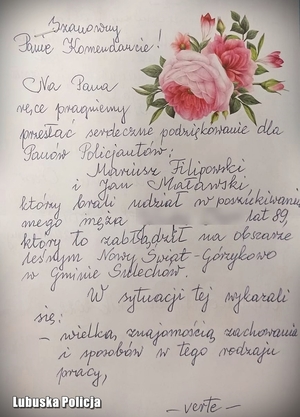 Szanowny
Panie Komendancie!
Na Pana
ręce pragniemy
przesłać serdeczne podziękowanie dla
Panów Policjantów:
Mariusz Filipowski
i Jan Matawski,
który brali udział w poszukiwaniu
mego męża lat 89,
który to zabłądził na obszarze
leśnym Nowy Świat-Górzykowo
w Gminie Sulechów.
W sytuacji tej wykazali
się:
- wielką znajomością zachowania
i sposobów w tego rodzaju
pracy,
- verte -
Lubuska Policja